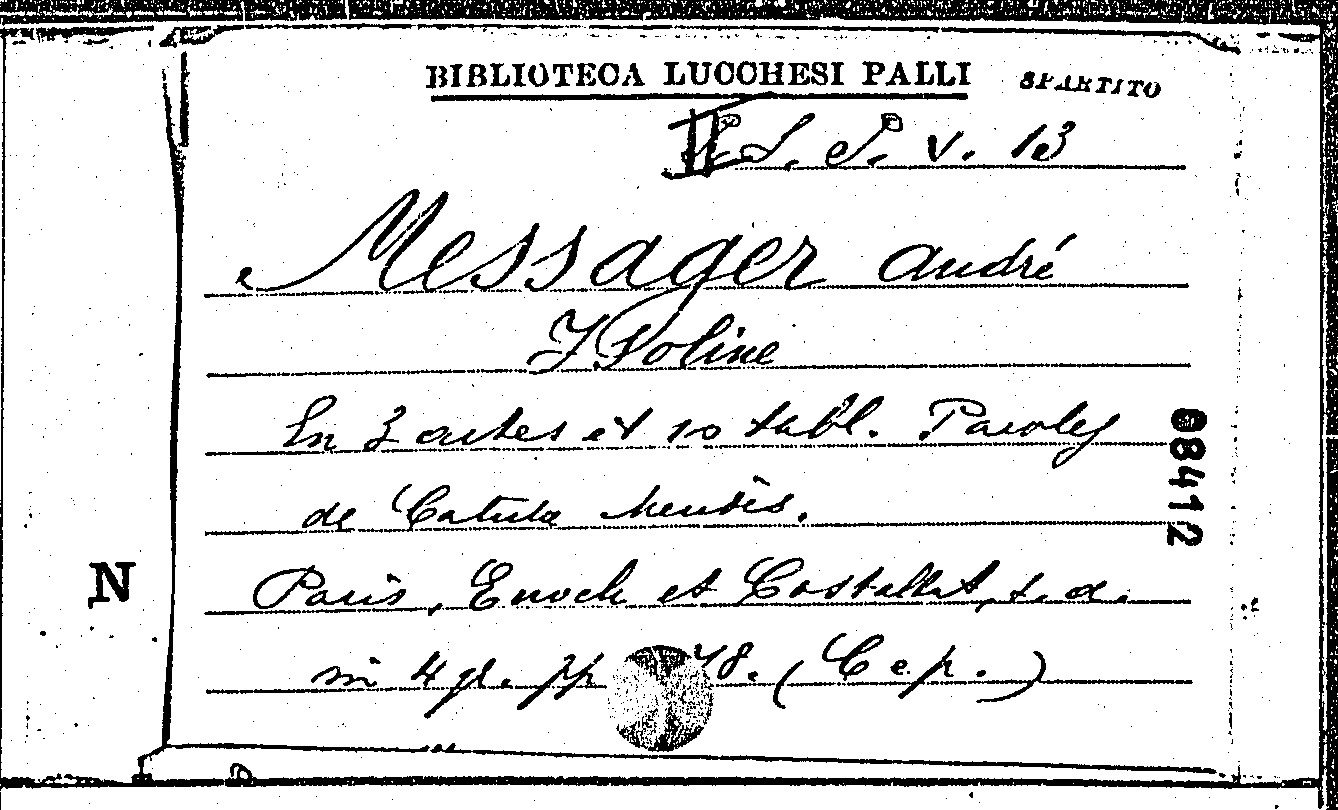 BIBLIOTECA LUCCHESI PALLI SPARTITO
S. P. V. 13
Messager André
Isoline
En 3 actes et 10 tabl. Paroles
de Catulle Mendès.
Paris, Enoch et Costallat, s. d.
in 4 gr. pp 78. (C e p.)
N
08412